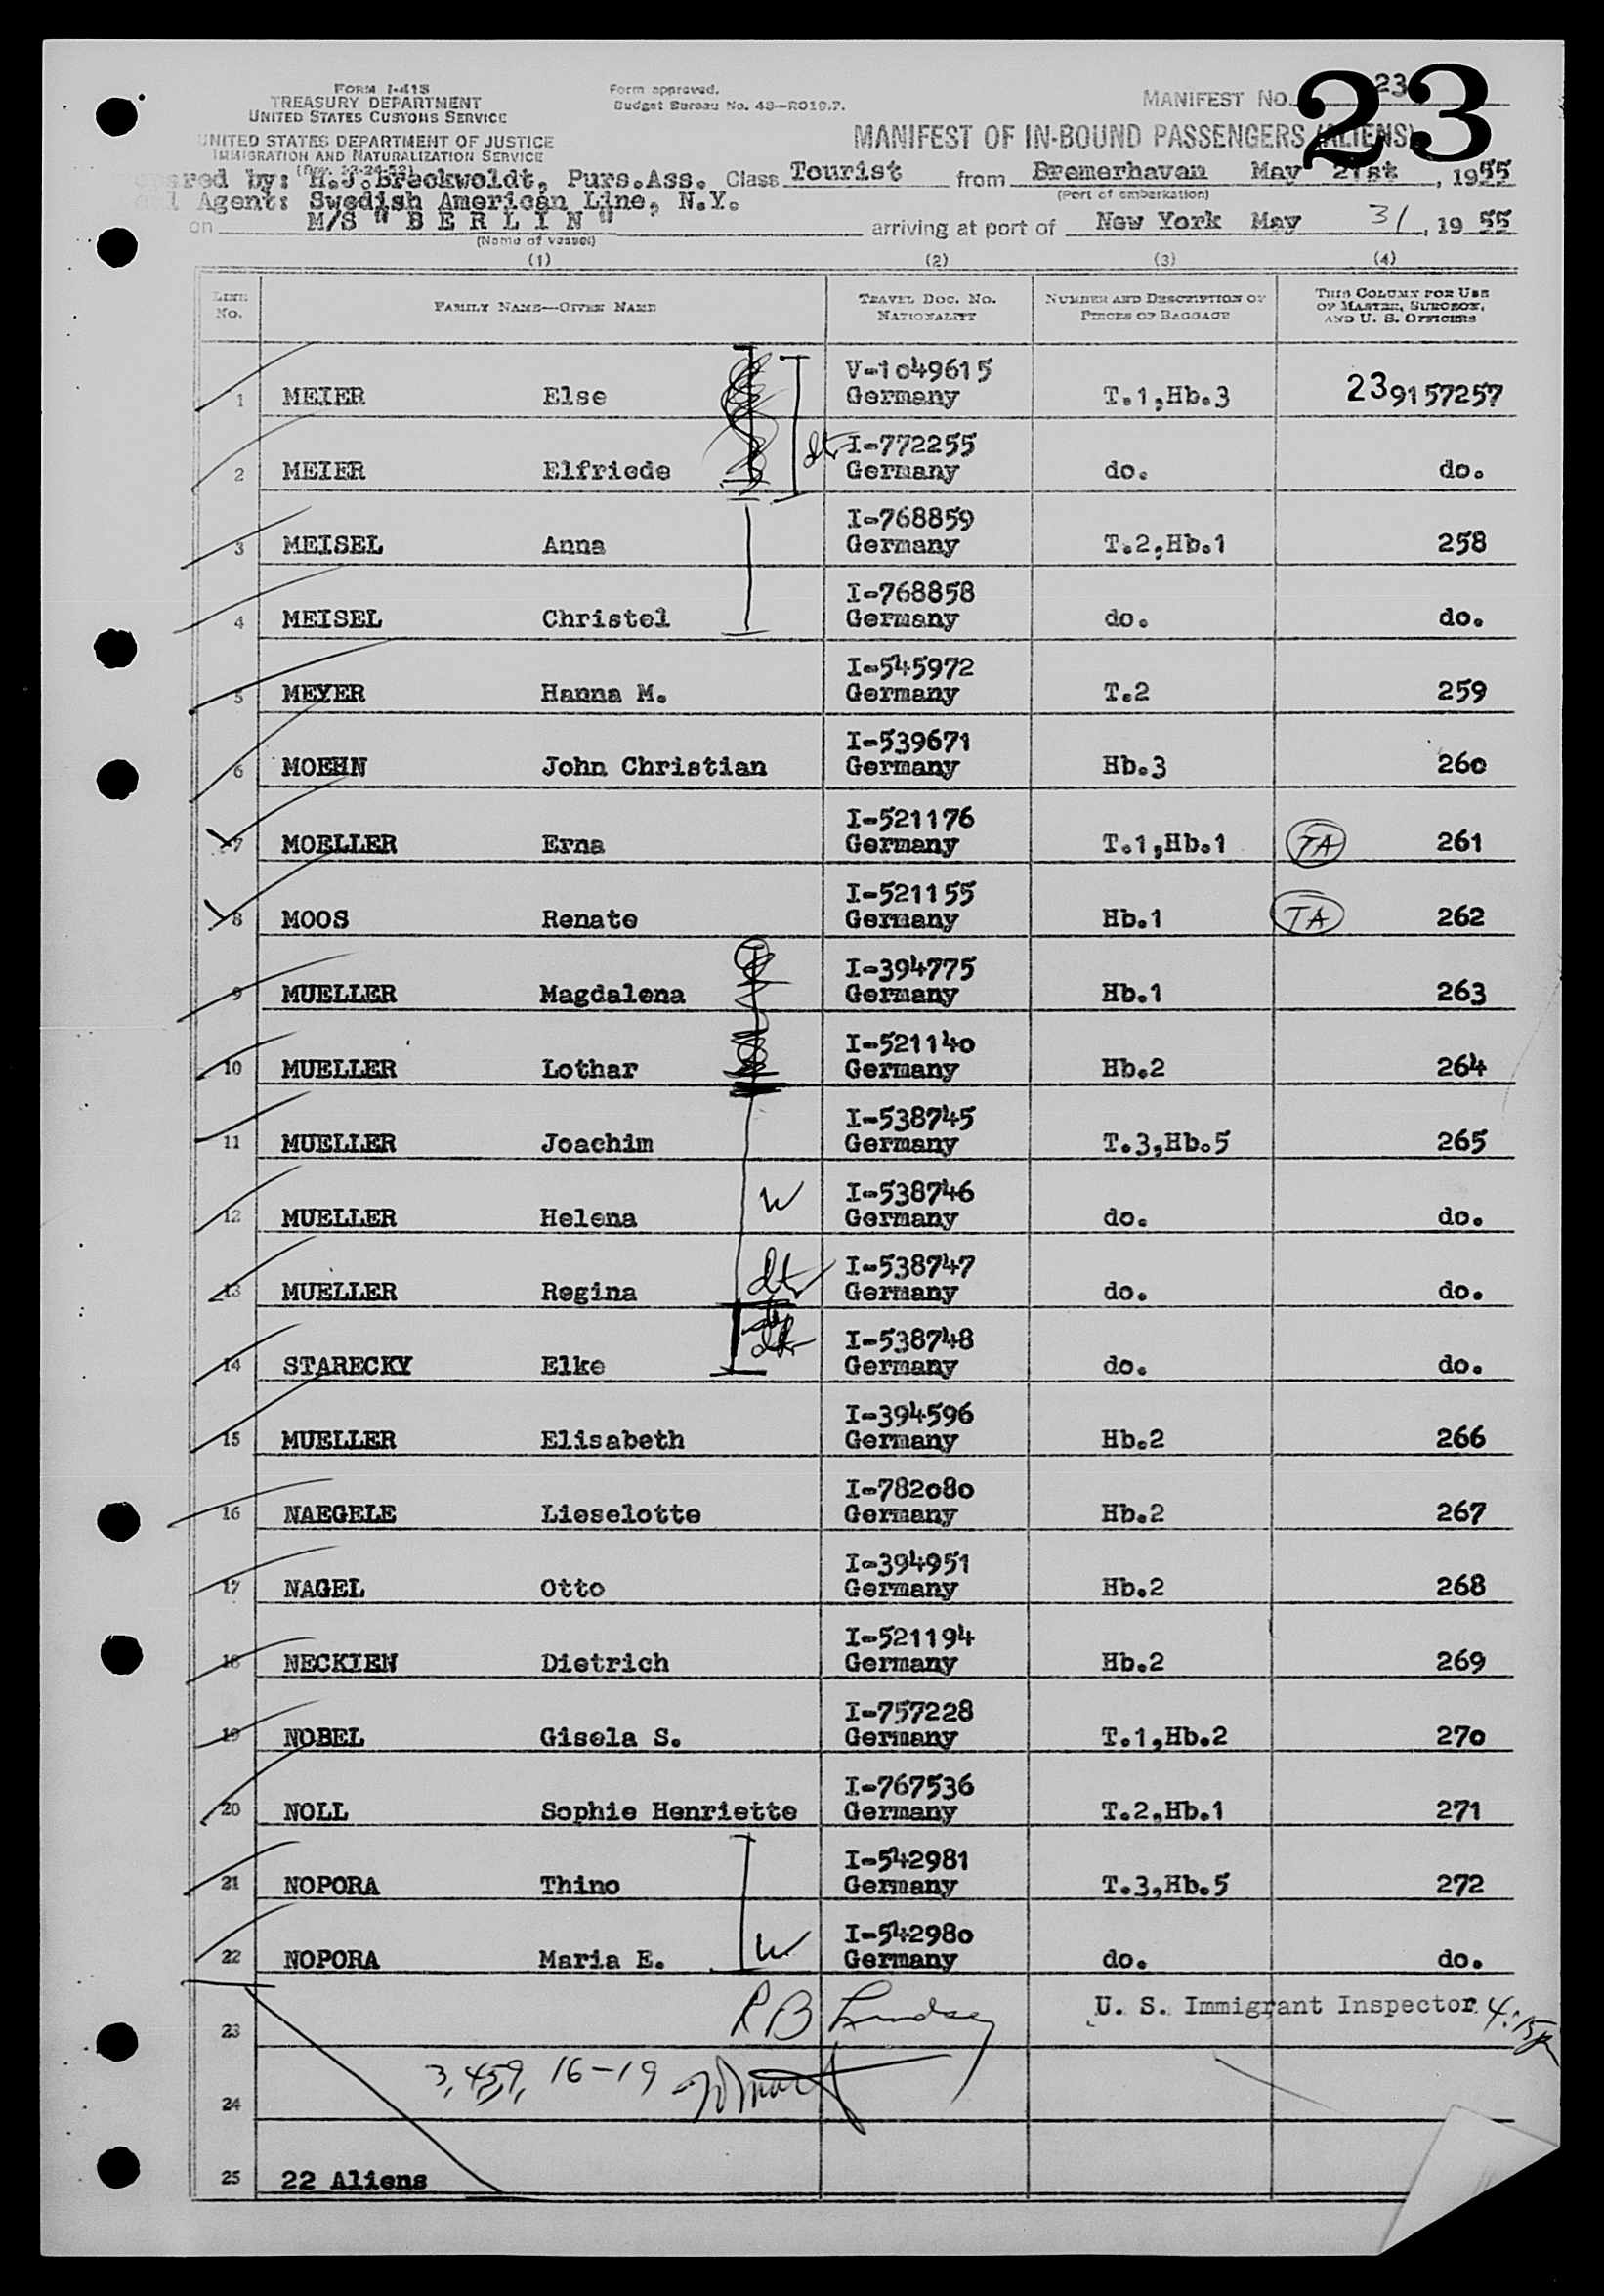 FORM I-418
TREASURY DEPARTMENT
UNITED STATES CUSTOMS SERVICE
UNITED STATES DEPARTMENT OF JUSTICE
IMMIGRATION AND NATURALIZATION SERVICE
Form approved.
Budget Bureau No. 43-R019.7.
MANIFEST NO. 23
23
MANIFEST OF IN-BOUND PASSENGERS (ALIENS)
by: H.J.Breckwoldt, Purs.Ass. Class Tourist from Bremerhaven May 21st, 1955
(Port of embarkation)
Agent: Swedish American Line, N.Y.
on M/S "B E R L I N" arriving at port of New York May 31, 19 55
(Name of vessel)
(1) (2) (3) (4)
LINE NO. FAMILY NAME—GIVEN NAME TRAVEL DOC. NO. NATIONALITY NUMBER AND DESCRIPTION OF PIECES OF BAGGAGE THIS COLUMN FOR USE OF MASTER, SURGEON, AND U. S. OFFICERS
V-1049615
1 MEIER Else Germany T.1,Hb.3 239157257
dtr I-772255
2 MEIER Elfriede Germany do. do.
I-768859
3 MEISEL Anna Germany T.2,Hb.1 258
I-768858
4 MEISEL Christel Germany do. do.
I-545972
5 MEYER Hanna M. Germany T.2 259
I-539671
6 MOEHN John Christian Germany Hb.3 260
I-521176
7 MOELLER Erna Germany T.1,Hb.1 TA 261
I-521155
8 MOOS Renate Germany Hb.1 TA 262
I-394775
9 MUELLER Magdalena Germany Hb.1 263
I-521140
10 MUELLER Lothar Germany Hb.2 264
I-538745
11 MUELLER Joachim Germany T.3,Hb.5 265
W I-538746
12 MUELLER Helena Germany do. do.
dtr I-538747
13 MUELLER Regina Germany do. do.
dtr I-538748
14 STARECKY Elke Germany do. do.
I-394596
15 MUELLER Elisabeth Germany Hb.2 266
I-782080
16 NAEGELE Lieselotte Germany Hb.2 267
I-394951
17 NAGEL Otto Germany Hb.2 268
I-521194
18 NECKIEN Dietrich Germany Hb.2 269
I-757228
19 NOBEL Gisela S. Germany T.1,Hb.2 270
I-767536
20 NOLL Sophie Henriette Germany T.2,Hb.1 271
I-542981
21 NOPORA Thino Germany T.3,Hb.5 272
I-542980
22 NOPORA Maria E. W Germany do. do.
R B Lindsey U. S. Immigrant Inspector
23
3, 4, 5, 9, 16-19
24
25 22 Aliens